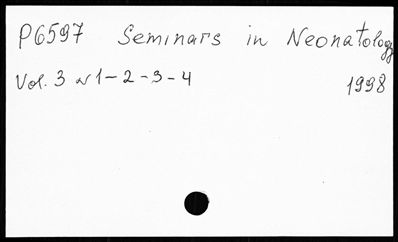 P6597 Seminars in Neonatology
Vol. 3 N 1-2-3-4 1998